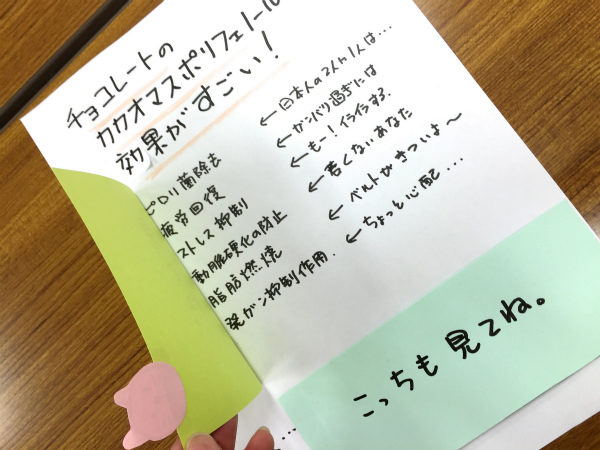 チョコレートの
カカオマスポリフェノール
効果がすごい!
ピロリ菌除去 ← 日本人の2人に1人は...
疲労回復 ← ガンバリ過ぎには
ストレス抑制 ← もー!イライラする、
動脈硬化の防止 ← 若くないあなた
脂肪燃焼 ← ベルトがきついよ〜
発ガン抑制作用. ← ちょっと心配...
こっちも見てね。
...